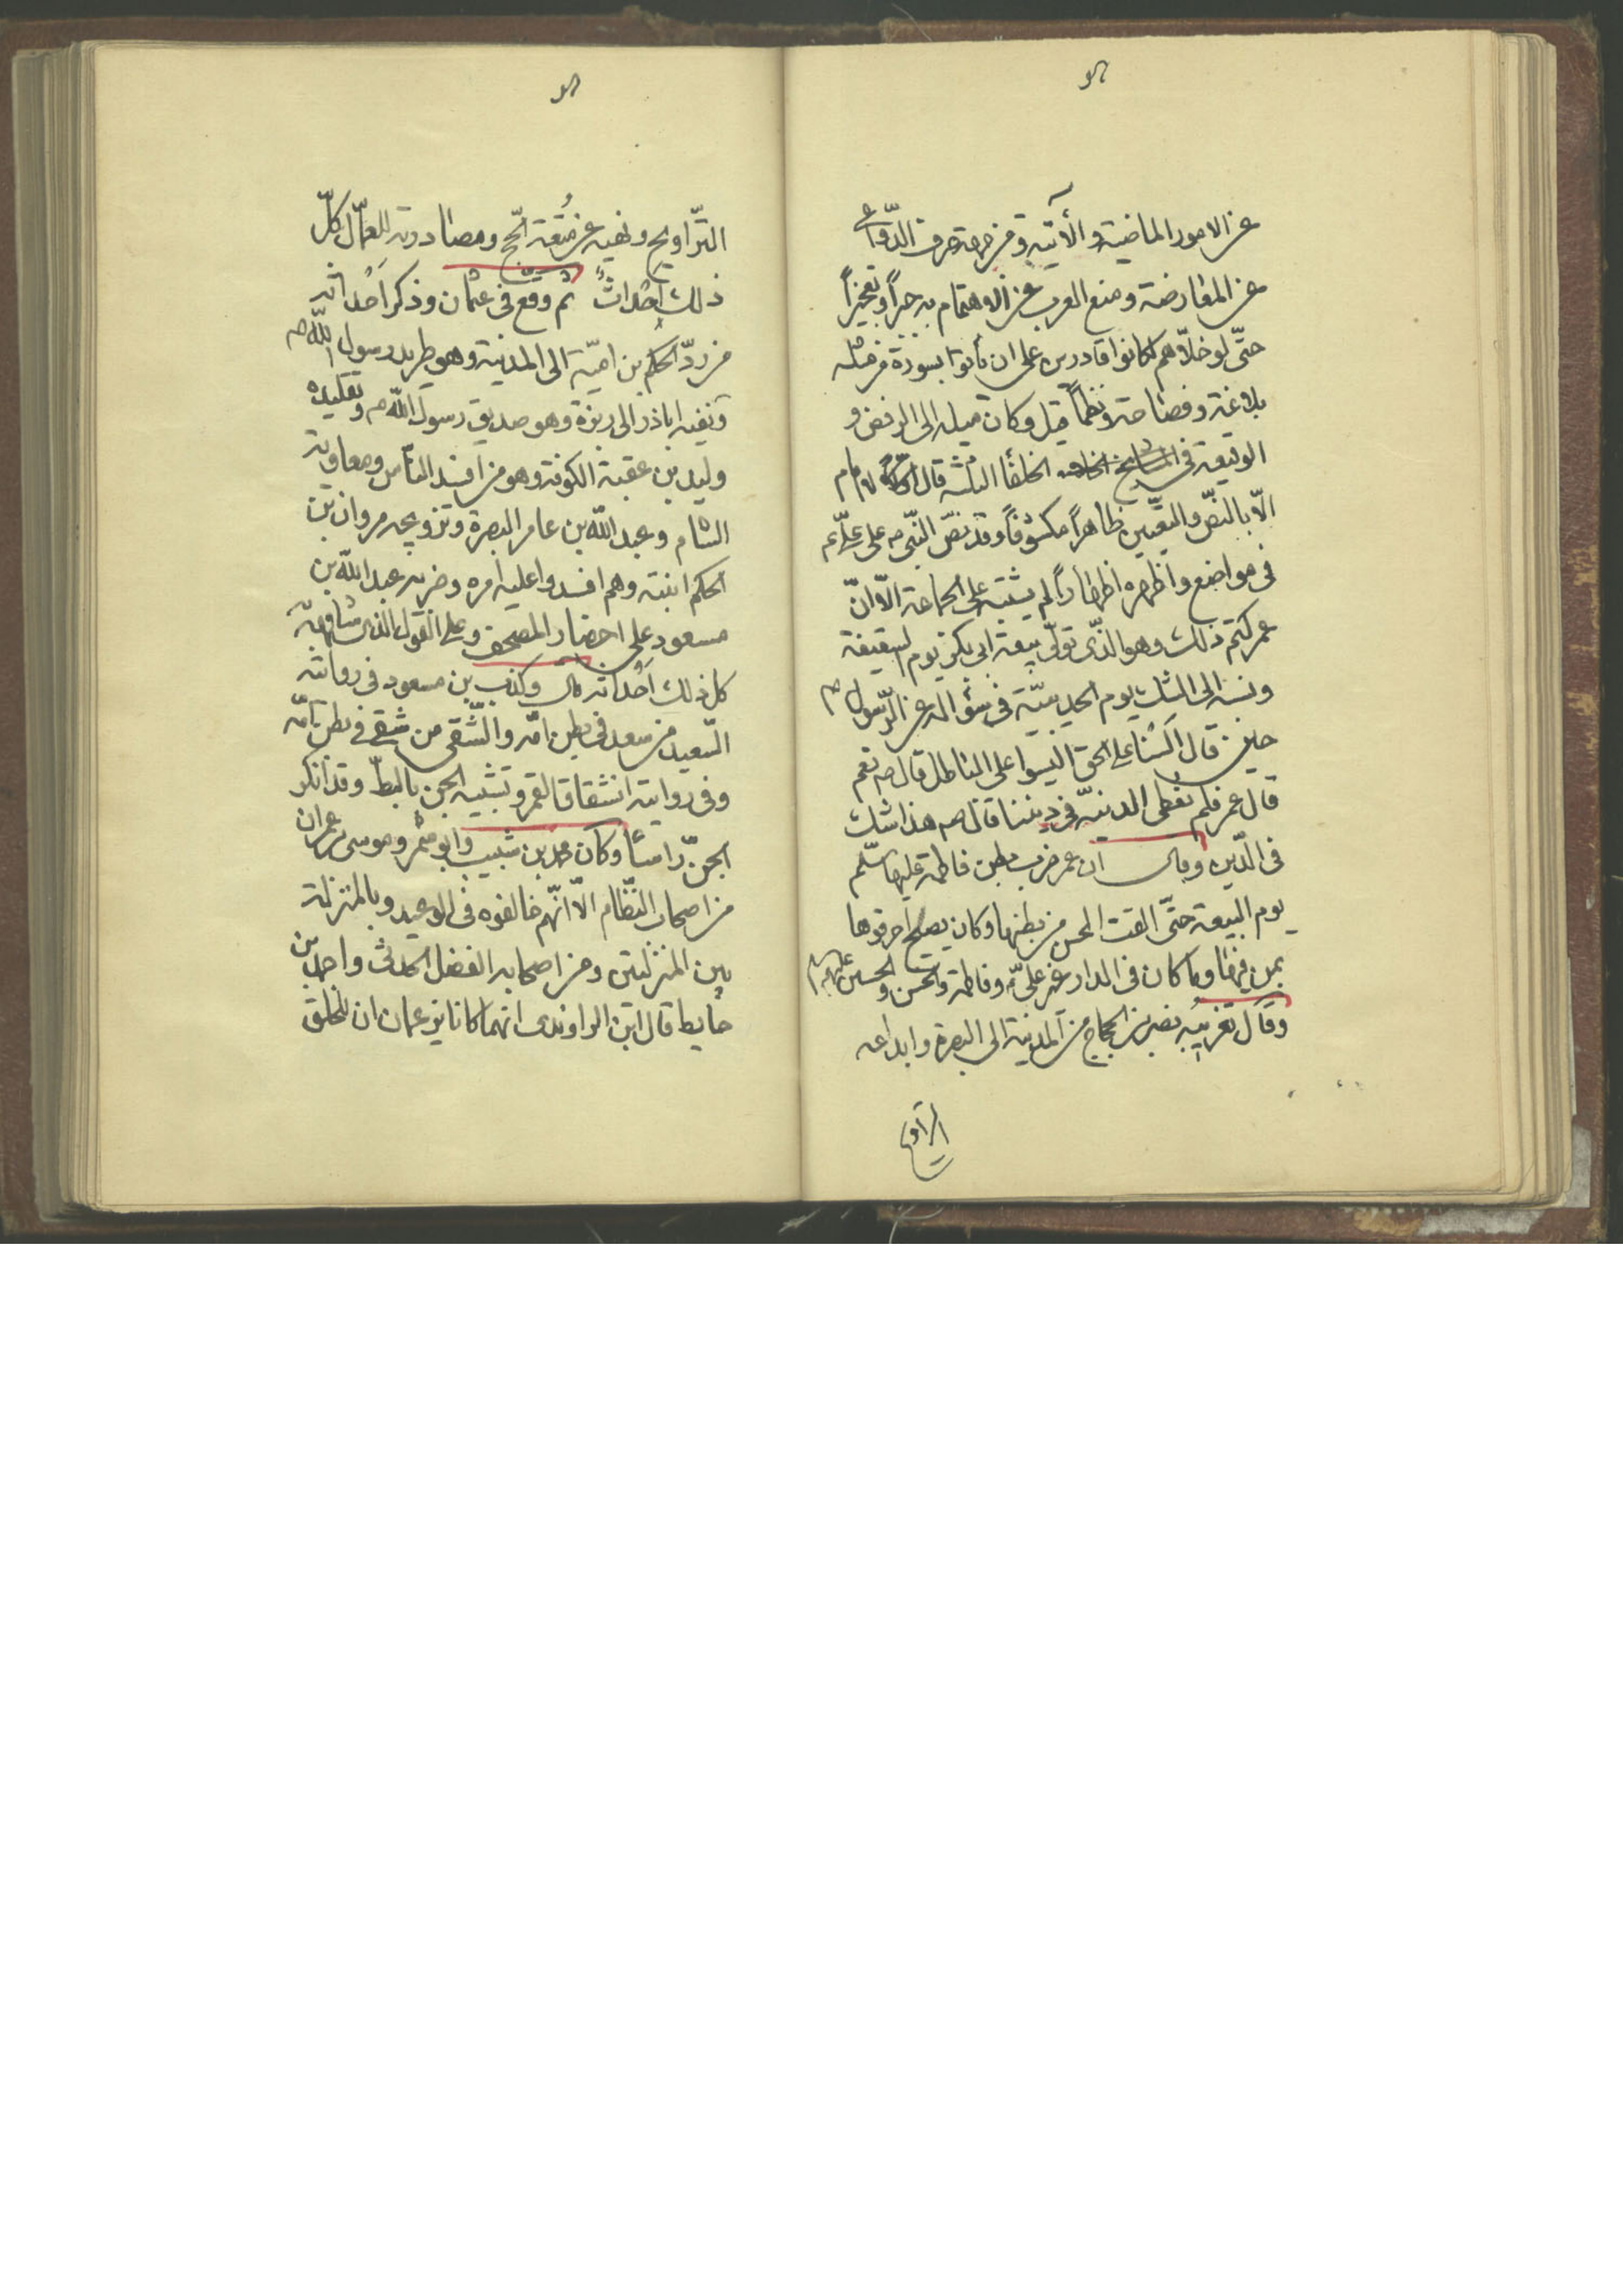 عن الامور الماضية والآتية ومن جهة صرف الدّواعی
عن المعارضة ومنع العرب عن الاهتمام به جبراً وتعجیزاً
حتّی لو خلّاهم لکانوا قادرین علی ان یأتوا بسورة من مثله
بلاغة وفصاحة ونظماً قیل وکان میله الی الرفض و
الوقیعة فی الخلفا الثلثة قال لا امام
الّا بالنصّ والتعیین ظاهراً مکشوفاً وقد نصّ النّبی ص علی علیّ ع
فی مواضع واظهره اظهاراً لم یشتبه علی الجماعة الّا انّ
عمر کتم ذلک وهو الذّی تولّی بیعة ابی بکر یوم السقیفة
ونسبه الی الشک یوم الحدیبیّة فی سؤاله عن الرّسول ص
حین قال السنا علی الحق الیسوا علی الباطل قال ص نعم
قال عمر فلم نعطی الدنیّة فی دیننا قال ص هذا شک
فی الدّین وقال ان عمر ضرب بطن فاطمة علیها سلّم
یوم البیعة حتّی القت المحسن من بطنها وکان یصلح احرقوها
بمن فیها وما کان فی الدار غیر علیّ وفاطمة والحسن والحسین علیهم
وقال تغریبه نصر بن الحجاج من المدینة الی البصرة وابداعه
التراویح
التّراویح ونهیه عن متعة الحّج ومصادرته للعمّال کلّ
ذلک احداثٌ ثم وقع فی عثمان وذکر احداثه
من ردّ الحکم بن امیّة الی المدینة وهو طرید رسول اللّه ص
ونفیه اباذر الی ربذة وهو صدیق رسول اللّه ص وتقلیده
ولید بن عقبة الکوفة وهو من افسد النّاس ومعاویة
الشام وعبد اللّه بن عامر البصرة وتزویجه مروان بن
الحکم ابنته وهم افسدوا علیه امره وضربه عبد اللّه بن
مسعود علی احضار المصحف وعلی القول الذی شاقهه به
کل ذلک احداثه قال وکذب بن مسعود فی روایته
السّعید من سعد فی بطن امّه والشّقی من شقی فی بطن امّه
وفی روایته انشقاق القمر وتشبیه الجن بالبطّ وقد انکر
الجنّ راساً وکان محمد بن شبیب وابو شمر وموسی بن عمران
من اصحاب النظّام الّا انّهم خالفوه فی الوعید وبالمنزلة
بین المنزلتین ومن اصحابه الفضل الحدثی واحمد بن
حایط قال ابن الراوندی انهما کانا یزعمان ان للخلق